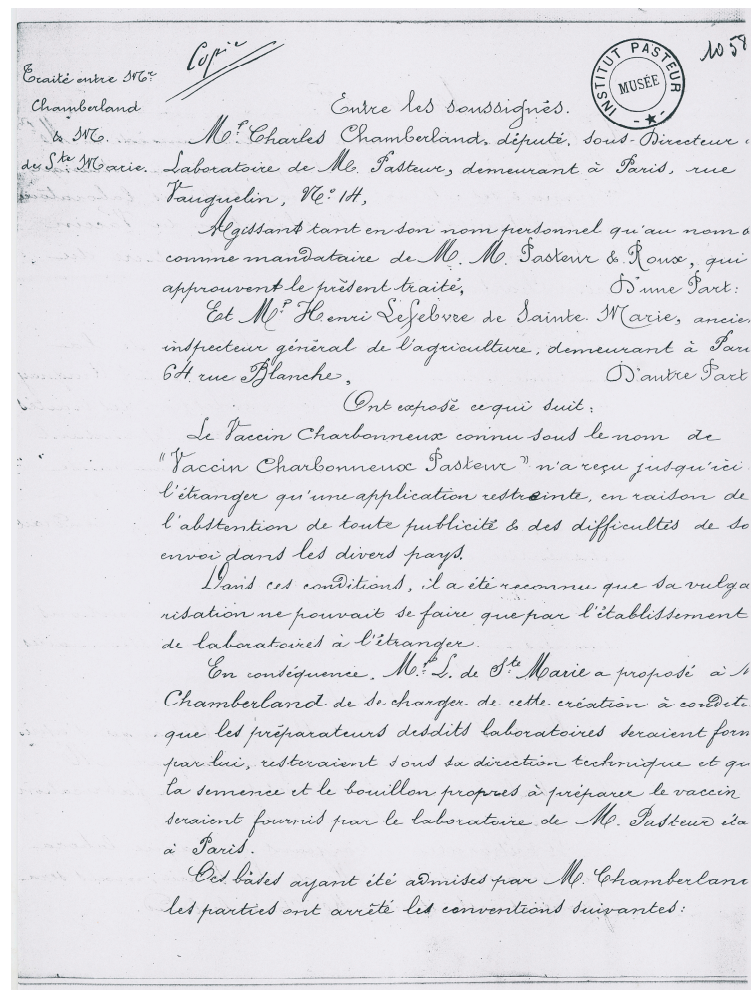 Copie
INSTITUT PASTEUR
MUSÉE
1058
Traité entre Mr
Chamberland
& M.
de Ste Marie.
Entre les soussignés.
Mr Charles Chamberland, député, sous-Directeur
Laboratoire de M. Pasteur, demeurant à Paris, rue
Vauquelin, No 14,
Agissant tant en son nom personnel qu'au nom
comme mandataire de M. M. Pasteur & Roux, qui
approuvent le présent traité, D'une Part:
Et Mr Henri Lefebvre de Sainte Marie, ancien
inspecteur général de l'agriculture, demeurant à Pari
64 rue Blanche, D'autre Part
Ont exposé ce qui suit:
Le Vaccin Charbonneux connu sous le nom de
"Vaccin Charbonneux Pasteur" n'a reçu jusqu'ici
l'étranger qu'une application restreinte, en raison de
l'abstention de toute publicité & des difficultés de so
envoi dans les divers pays.
Dans ces conditions, il a été reconnu que sa vulga
risation ne pouvait se faire que par l'établissement
de laboratoires à l'étranger.
En conséquence, Mr L. de Ste Marie a proposé à M
Chamberland de se charger de cette création à conditi
que les préparateurs desdits laboratoires seraient form
par lui, resteraient sous sa direction technique et qu
la semence et le bouillon propres à préparer le vaccin
seraient fournis par le laboratoire de M. Pasteur éta
à Paris.
Ces bases ayant été admises par M. Chamberland
les parties ont arrêté les conventions suivantes: